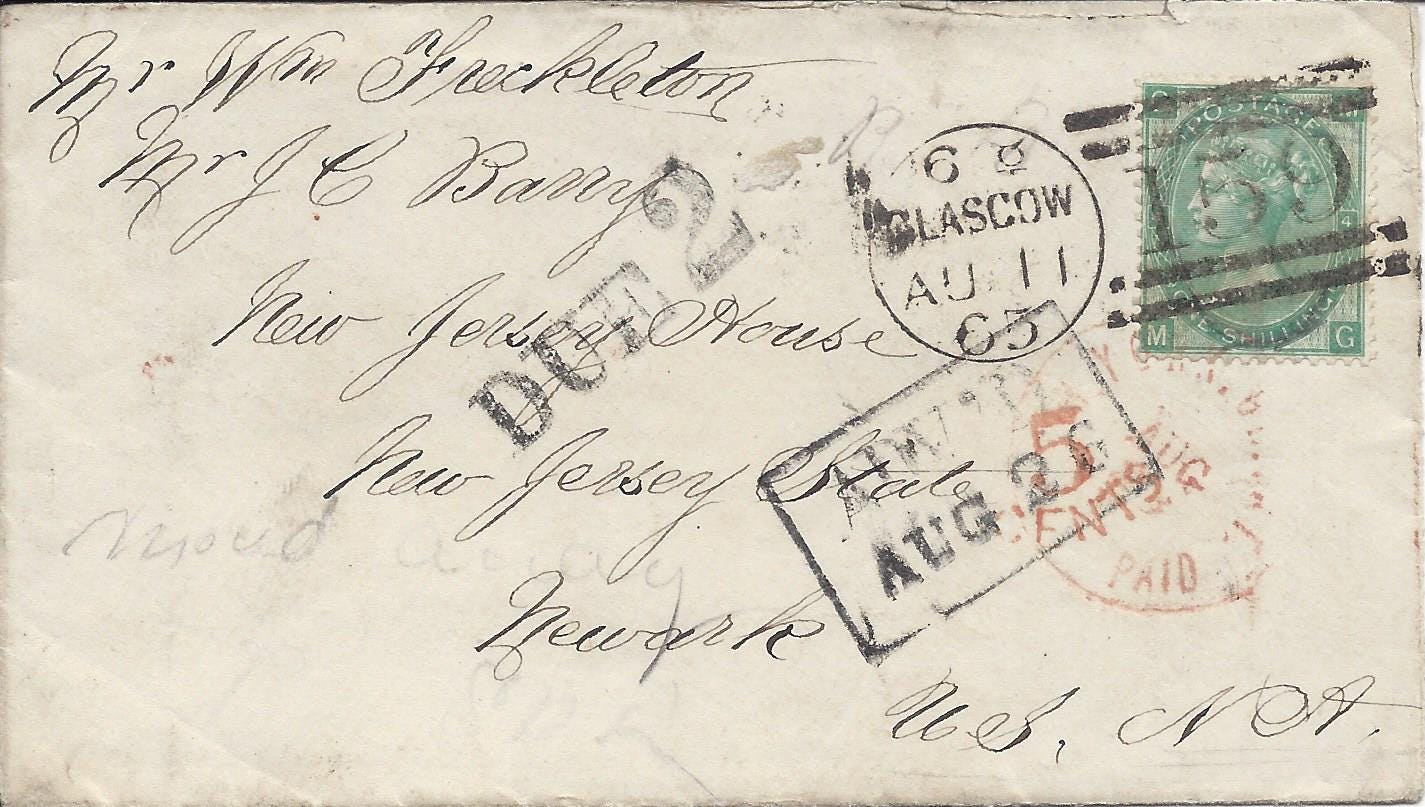 Mr Wm Freckleton
Mr J C Barry
New Jersey House
New Jersey State
Newark
U S. N A.
Moved away
DUE 2
6
GLASGOW
AU 11
63
159
POSTAGE
ONE SHILLING
4
M G
AUG 2
5
CENTS
AUG
PAID